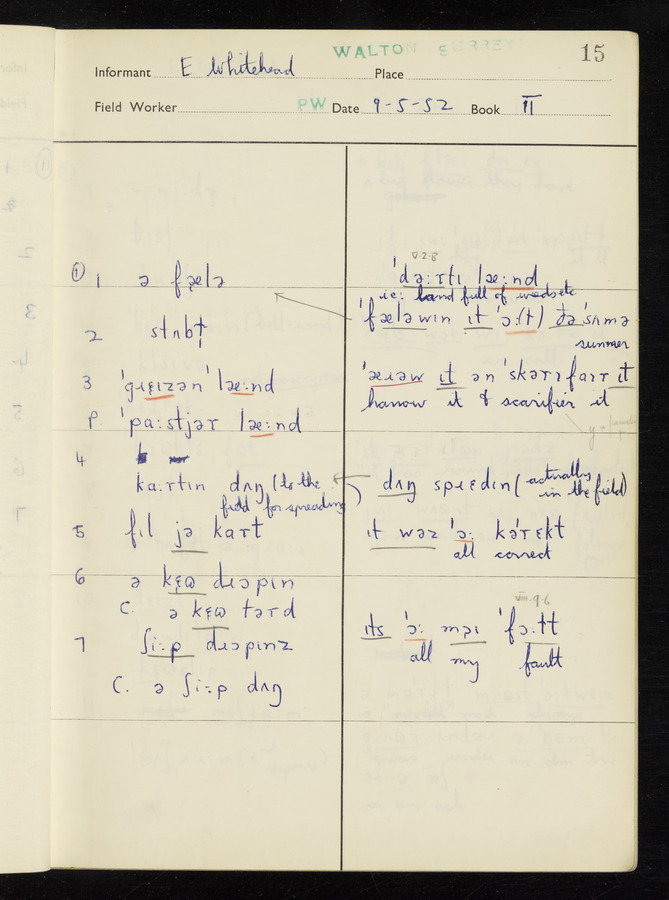 WALTON SURREY
15
Informant E Whitehead Place
Field Worker PW Date 9-5-52 Book II
① 1 ə fælə
2 stʌbt̩
3 'gɹɛɪzən' læ:nd
P. 'pa:stjəɾ læ:nd
4
ka:ɾtɪn dʌŋ (to the
field for spreading
5 fɪl jə kaɾt
6 ə kɛω dɹɔpɪn
C. ə kɛω təɾd
7 ʃi:p dɹɔpɪnz
C. ə ʃi:p dʌŋ
V.2.8
'də:ɾtɪ læ:nd
ie: land full of weeds etc
'fæləwɪn ɪt 'ɔ:(t) ðə 'sʌmə
summer
'æɹəw ɪt ən 'skəɾɪfaɪɾ ɪt
harrow it & scarifier it
dʌŋ spɹɛdɪn (actually
in the field)
ɪt wəz 'ɔ: kə'ɾɛkt
all correct
VIII.9.6
ɪts 'ɔ: məɪ 'fɔ:tt
all my fault